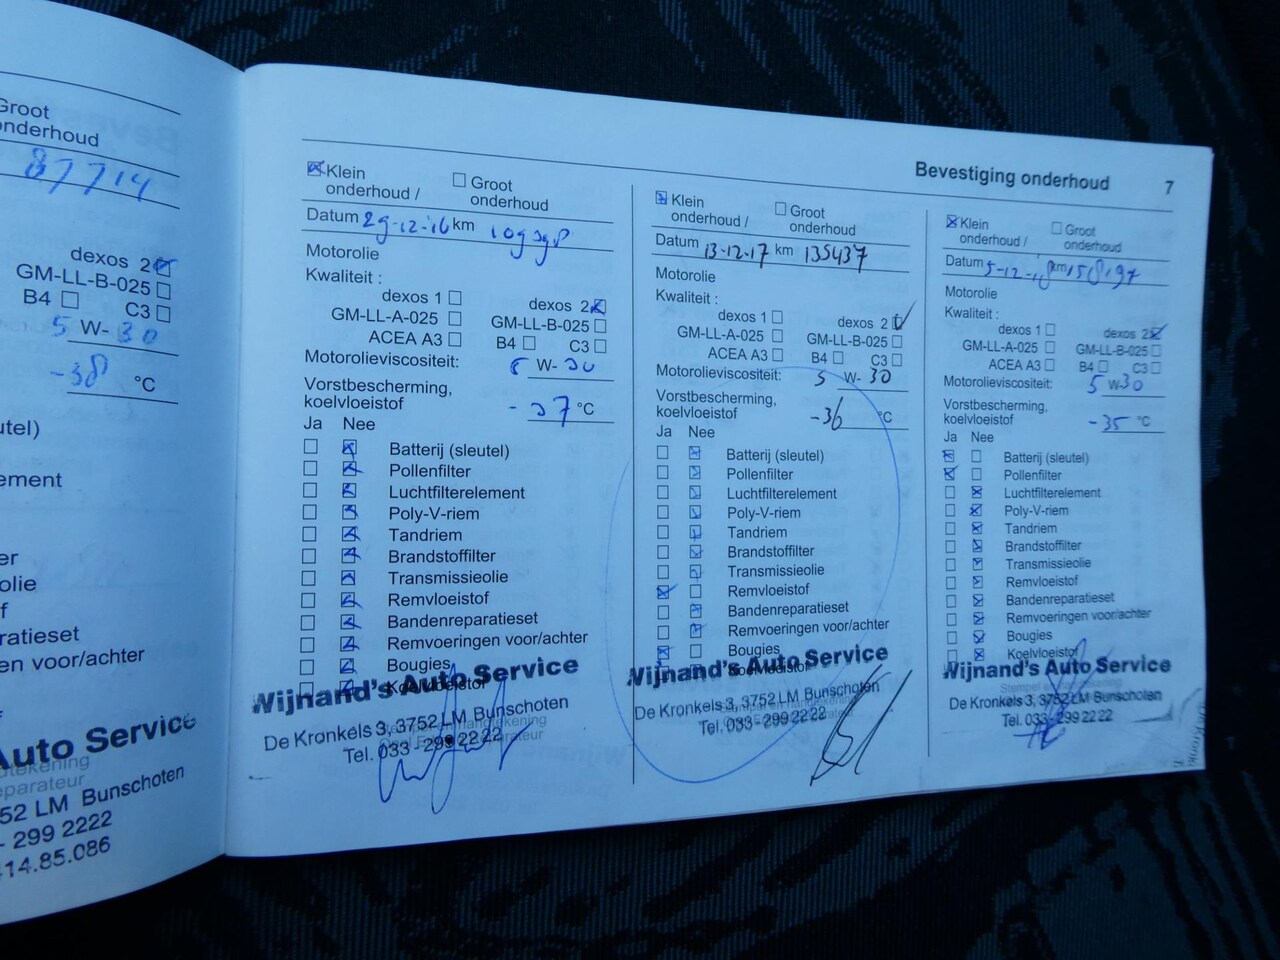 Groot
onderhoud
87714
dexos 2
GM-LL-B-025
B4 C3
5 W- 30
-38 °C
ement
ratieset
en voor/achter
Auto Service
52 LM Bunschoten
- 299 2222
14.85.086
Bevestiging onderhoud 7
Klein onderhoud / Groot onderhoud
Datum 29-12-'16 km
Motorolie
Kwaliteit :
dexos 1 dexos 2
GM-LL-A-025 GM-LL-B-025
ACEA A3 B4 C3
Motorolieviscositeit: 5 W- 30
Vorstbescherming,
koelvloeistof -37 °C
Ja Nee
Batterij (sleutel)
Pollenfilter
Luchtfilterelement
Poly-V-riem
Tandriem
Brandstoffilter
Transmissieolie
Remvloeistof
Bandenreparatieset
Remvoeringen voor/achter
Bougies
Koelvloeistof
Wijnand's Auto Service
De Kronkels 3, 3752 LM Bunschoten
Tel. 033 - 299 22 22
Klein onderhoud / Groot onderhoud
Datum 13-12-17 km 135437
Motorolie
Kwaliteit :
dexos 1 dexos 2
GM-LL-A-025 GM-LL-B-025
ACEA A3 B4 C3
Motorolieviscositeit: 5 W- 30
Vorstbescherming,
koelvloeistof -36 °C
Ja Nee
Batterij (sleutel)
Pollenfilter
Luchtfilterelement
Poly-V-riem
Tandriem
Brandstoffilter
Transmissieolie
Remvloeistof
Bandenreparatieset
Remvoeringen voor/achter
Bougies
Koelvloeistof
Wijnand's Auto Service
De Kronkels 3, 3752 LM Bunschoten
Tel. 033 - 299 22 22
Klein onderhoud / Groot onderhoud
Datum 5-12-18 km 158197
Motorolie
Kwaliteit :
dexos 1 dexos 2
GM-LL-A-025 GM-LL-B-025
ACEA A3 B4 C3
Motorolieviscositeit: 5 W-30
Vorstbescherming,
koelvloeistof -35 °C
Ja Nee
Batterij (sleutel)
Pollenfilter
Luchtfilterelement
Poly-V-riem
Tandriem
Brandstoffilter
Transmissieolie
Remvloeistof
Bandenreparatieset
Remvoeringen voor/achter
Bougies
Koelvloeistof
Wijnand's Auto Service
De Kronkels 3, 3752 LM Bunschoten
Tel. 033 - 299 22 22